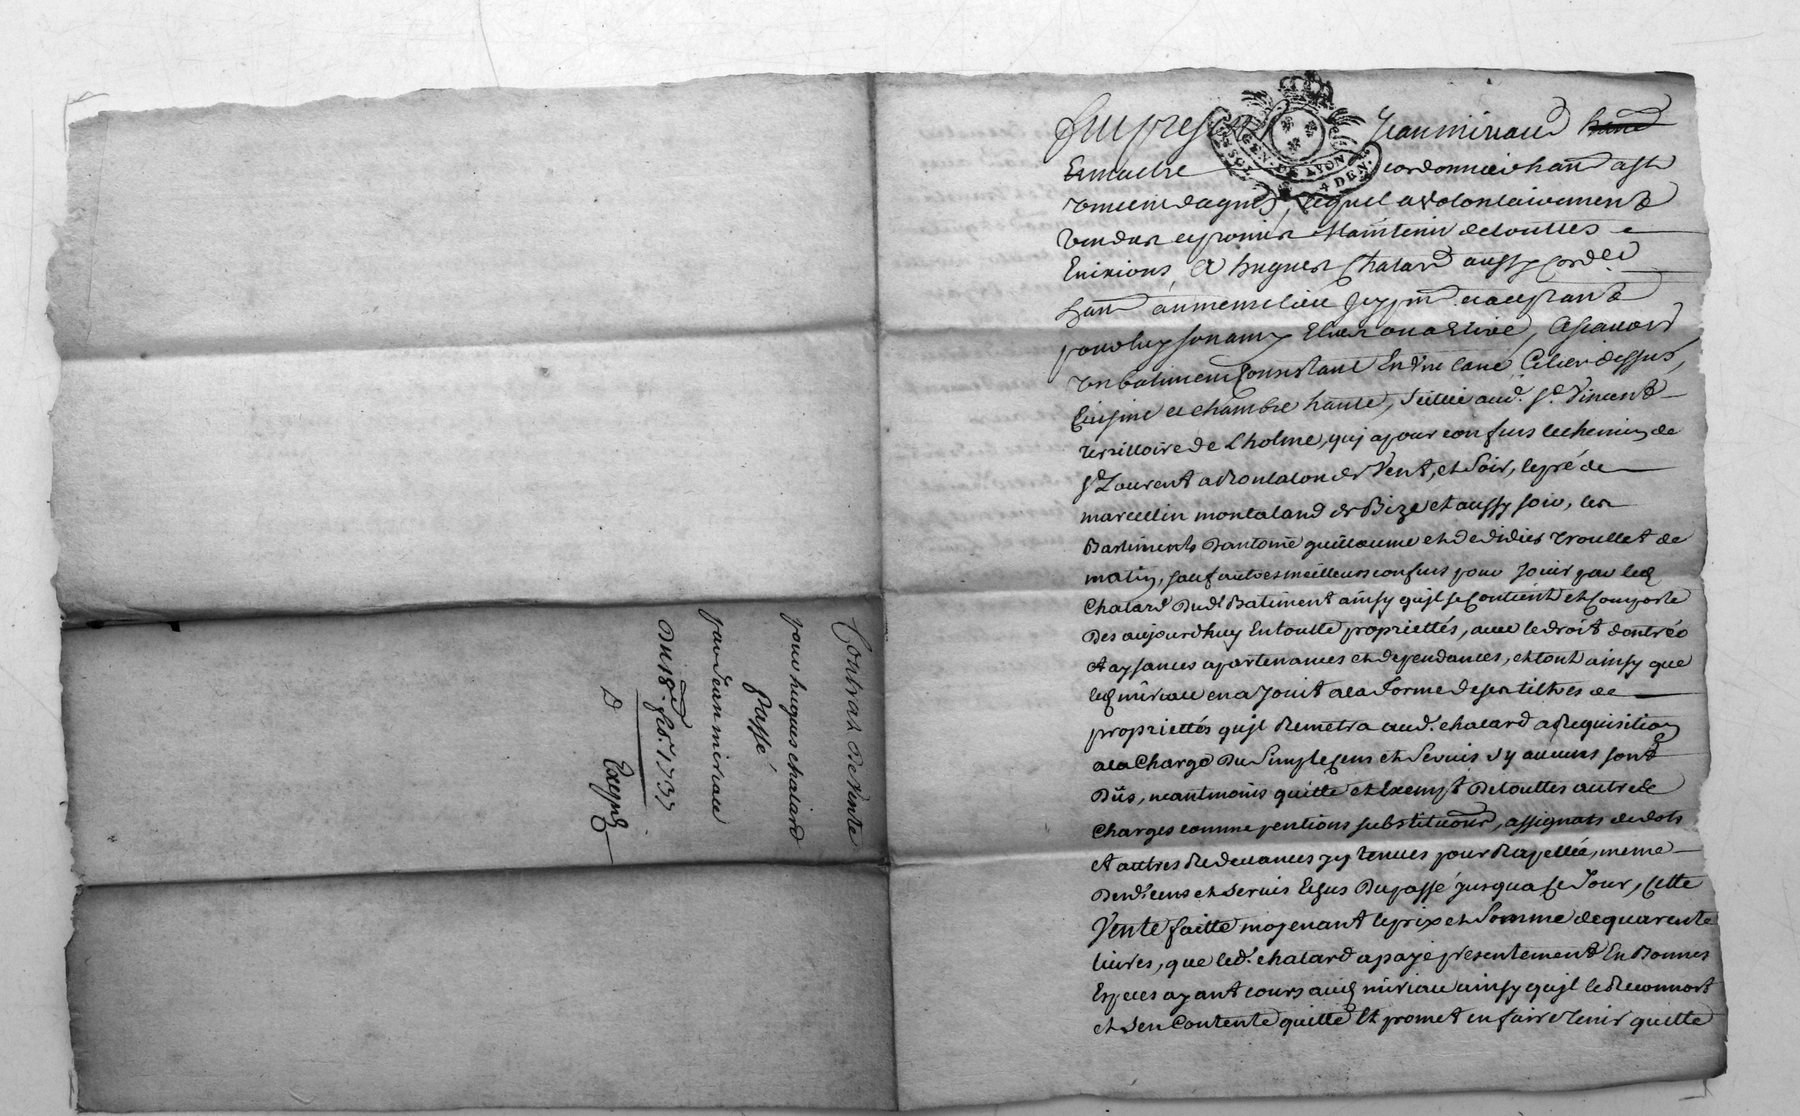 Contrat de Vente
pour hugues chatard
Passé
par Jean miriau
Du 18e fév. 1737
Expéd
GEN. DE LYON
4 DEN.
Fut present Jean miriau
maitre cordonnier hant
lequel a volontairement
Vendu et promis Maintenir de touttes
Evixions A hugues Chatard aussy Cord.er
hant au meme lieu Icy pnt et acceptant
pour luy son amy Eleu ou a Elire, Ascavoir
un batiment Consistant En une Cave Celier dessus,
Cuisine et chambre haute, Scittué aud. St. Vincent
territoire de Lholme, qui a pour confins le chemin de
St Laurent a Rontalon de Vent, et Soir, le pré de
marcellin montaland de Bize et aussy soir, les
Bastiments Dantoine guillaume et de didier troullet de
matin, sauf autres meilleurs confins pour Jouir par led
Chatard Dud Batiment ainsy qu'jl se Contient et Comporte
Des aujourdhuy En toutte proprietés, avec le droit dentrée
et aysances apartenances et dependances, et tout ainsy que
led miriau en a Jouit a la forme de ses tiltres de
proprietés qu'jl Remetra aud. chatard a Requisition
a la Charge Du Simple Cens et Servis sy aucuns sont
Dûs, neantmoins quitte et Exempt De touttes autre
Charges comme pentions substitutions, assignats de dots
et autres Redevances jcy tenues pour Rapellée, meme
Desd. cens et servis Echus Du passé jusqua Ce Jour, Cette
Vente faitte moyenant le prix et Somme de quarente
livres, que led. chatard a payé presentement En Bonnes
Especes ayant cours aud miriau ainsy qu'jl le Reconnoit
et s'en Contente quitte Et promet en faire tenir quitte